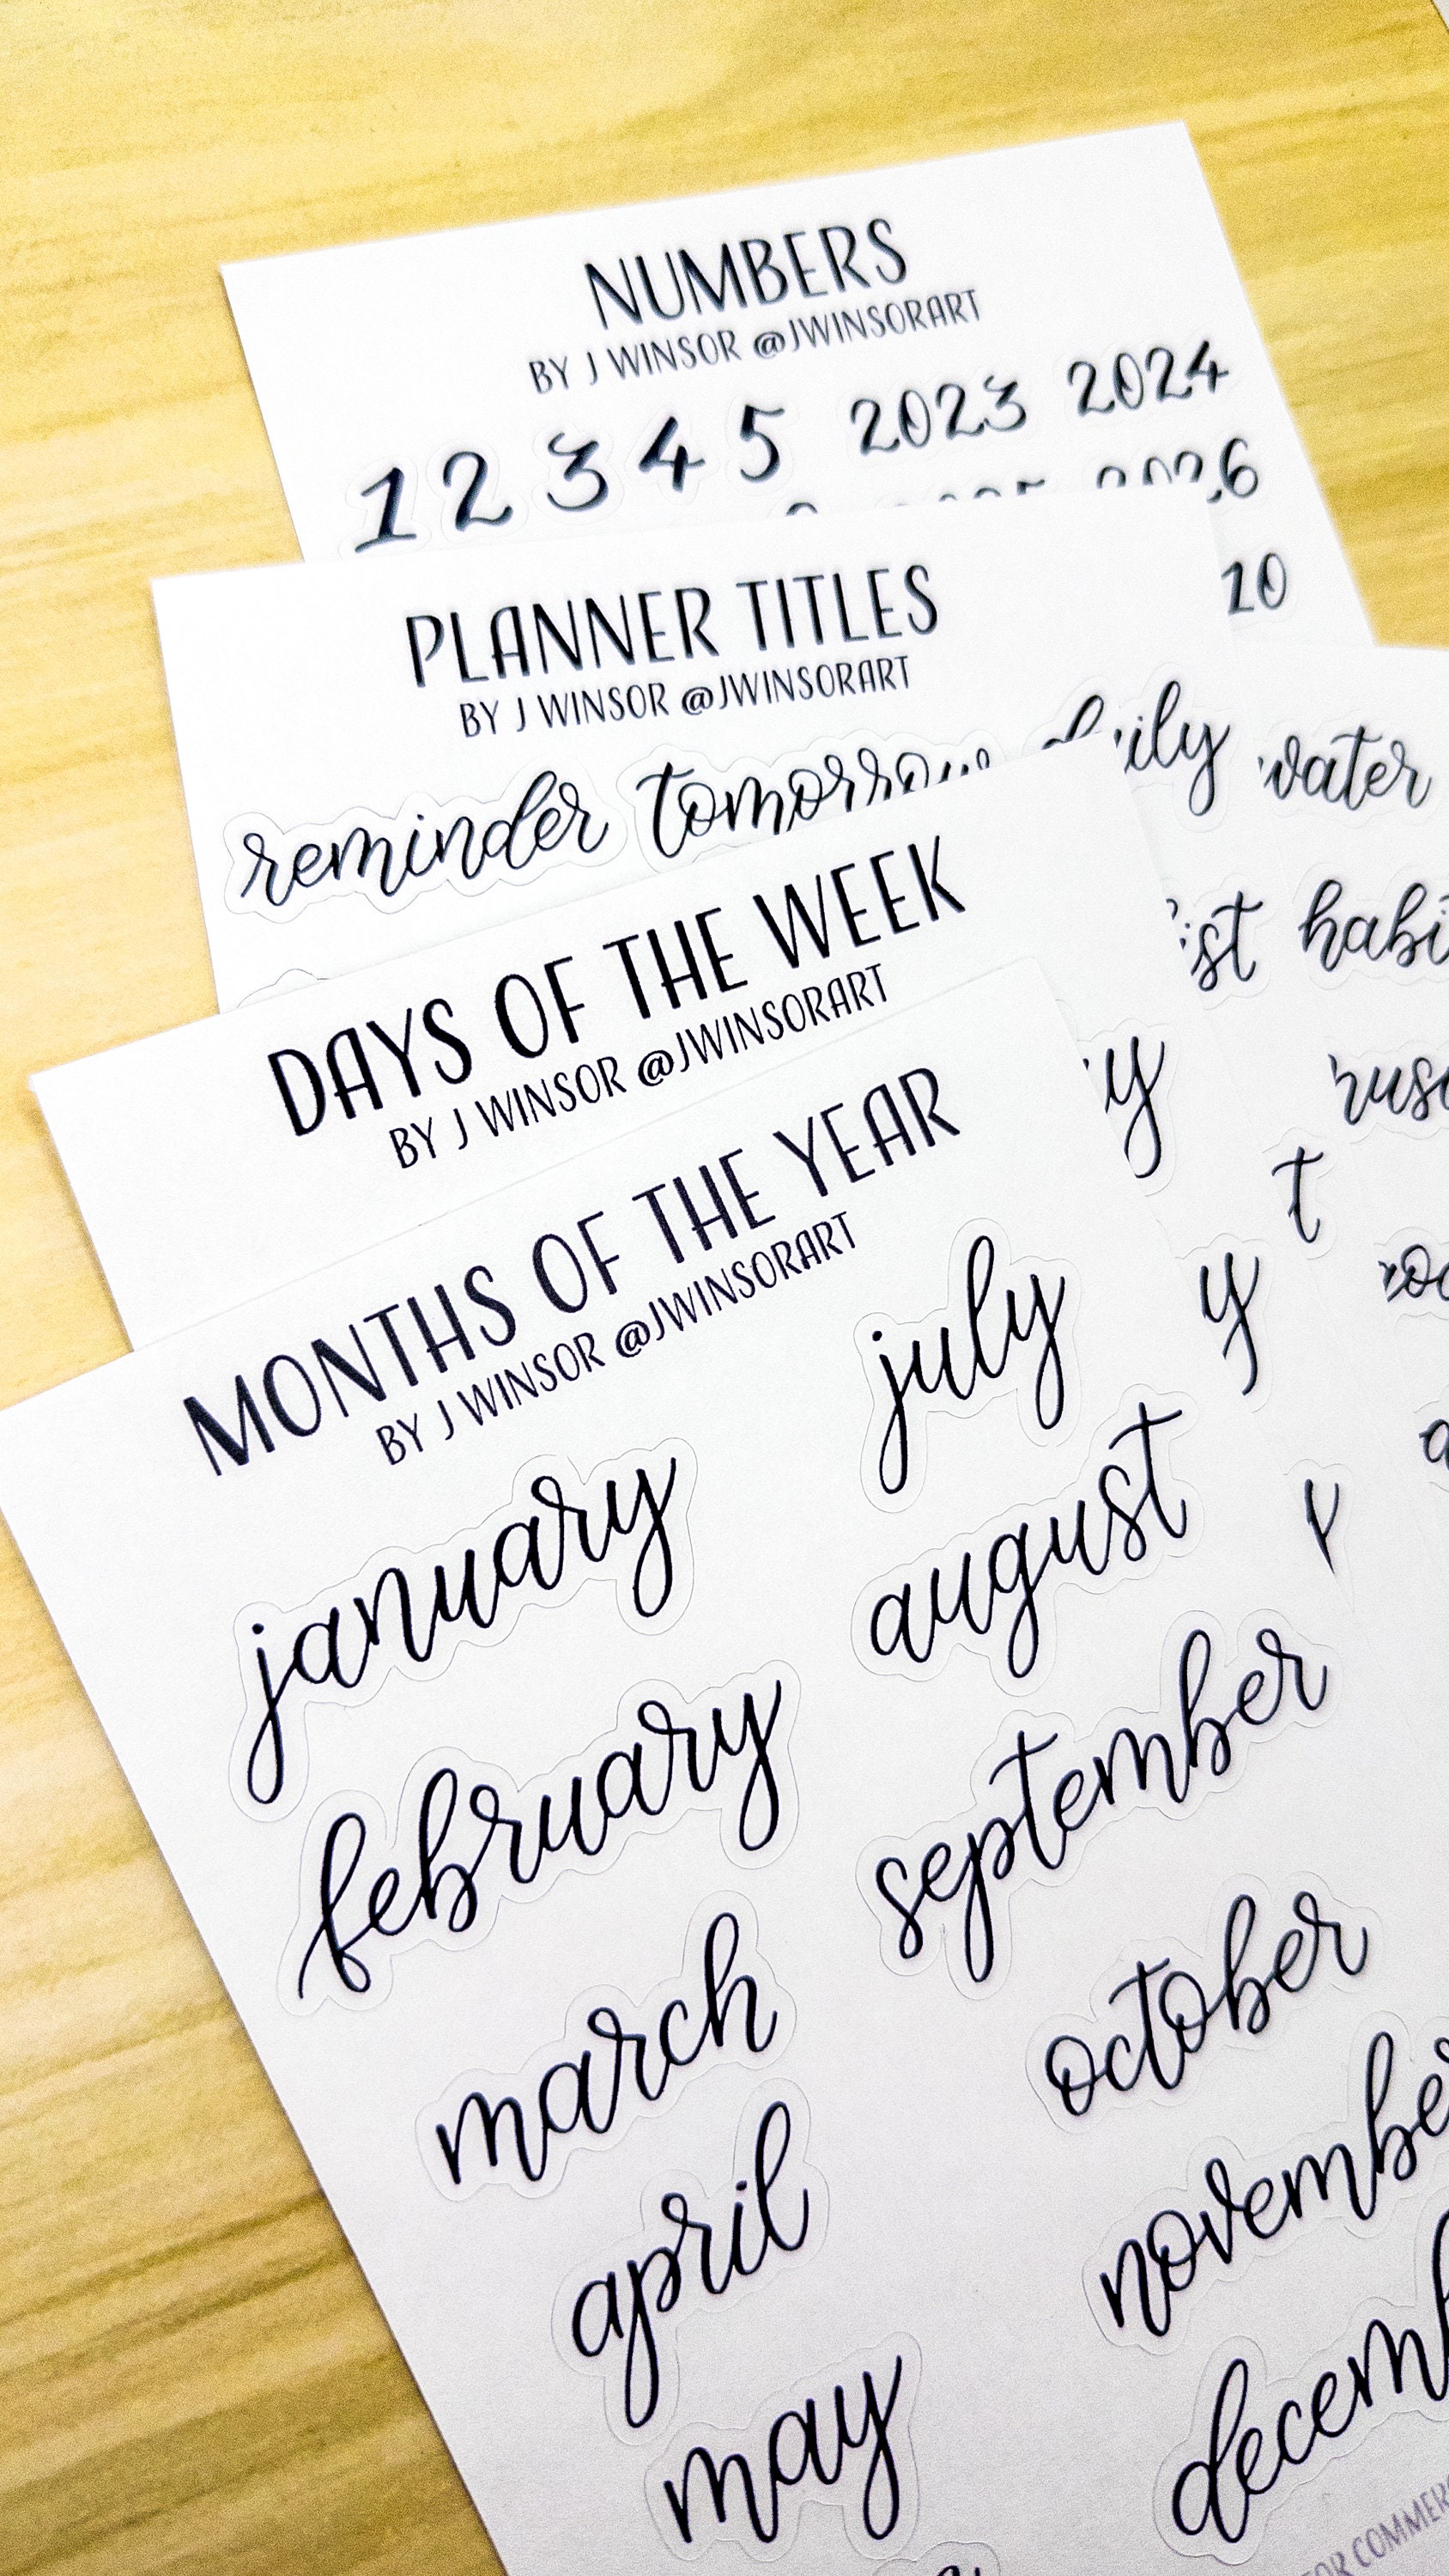 NUMBERS
BY J WINSOR @JWINSORART
1 2 3 4 5 2023 2024
10
PLANNER TITLES
BY J WINSOR @JWINSORART
reminder tomorrow daily water
DAYS OF THE WEEK
BY J WINSOR @JWINSORART
MONTHS OF THE YEAR
BY J WINSOR @JWINSORART
january
february
march
april
may
july
august
september
october
november
decemb